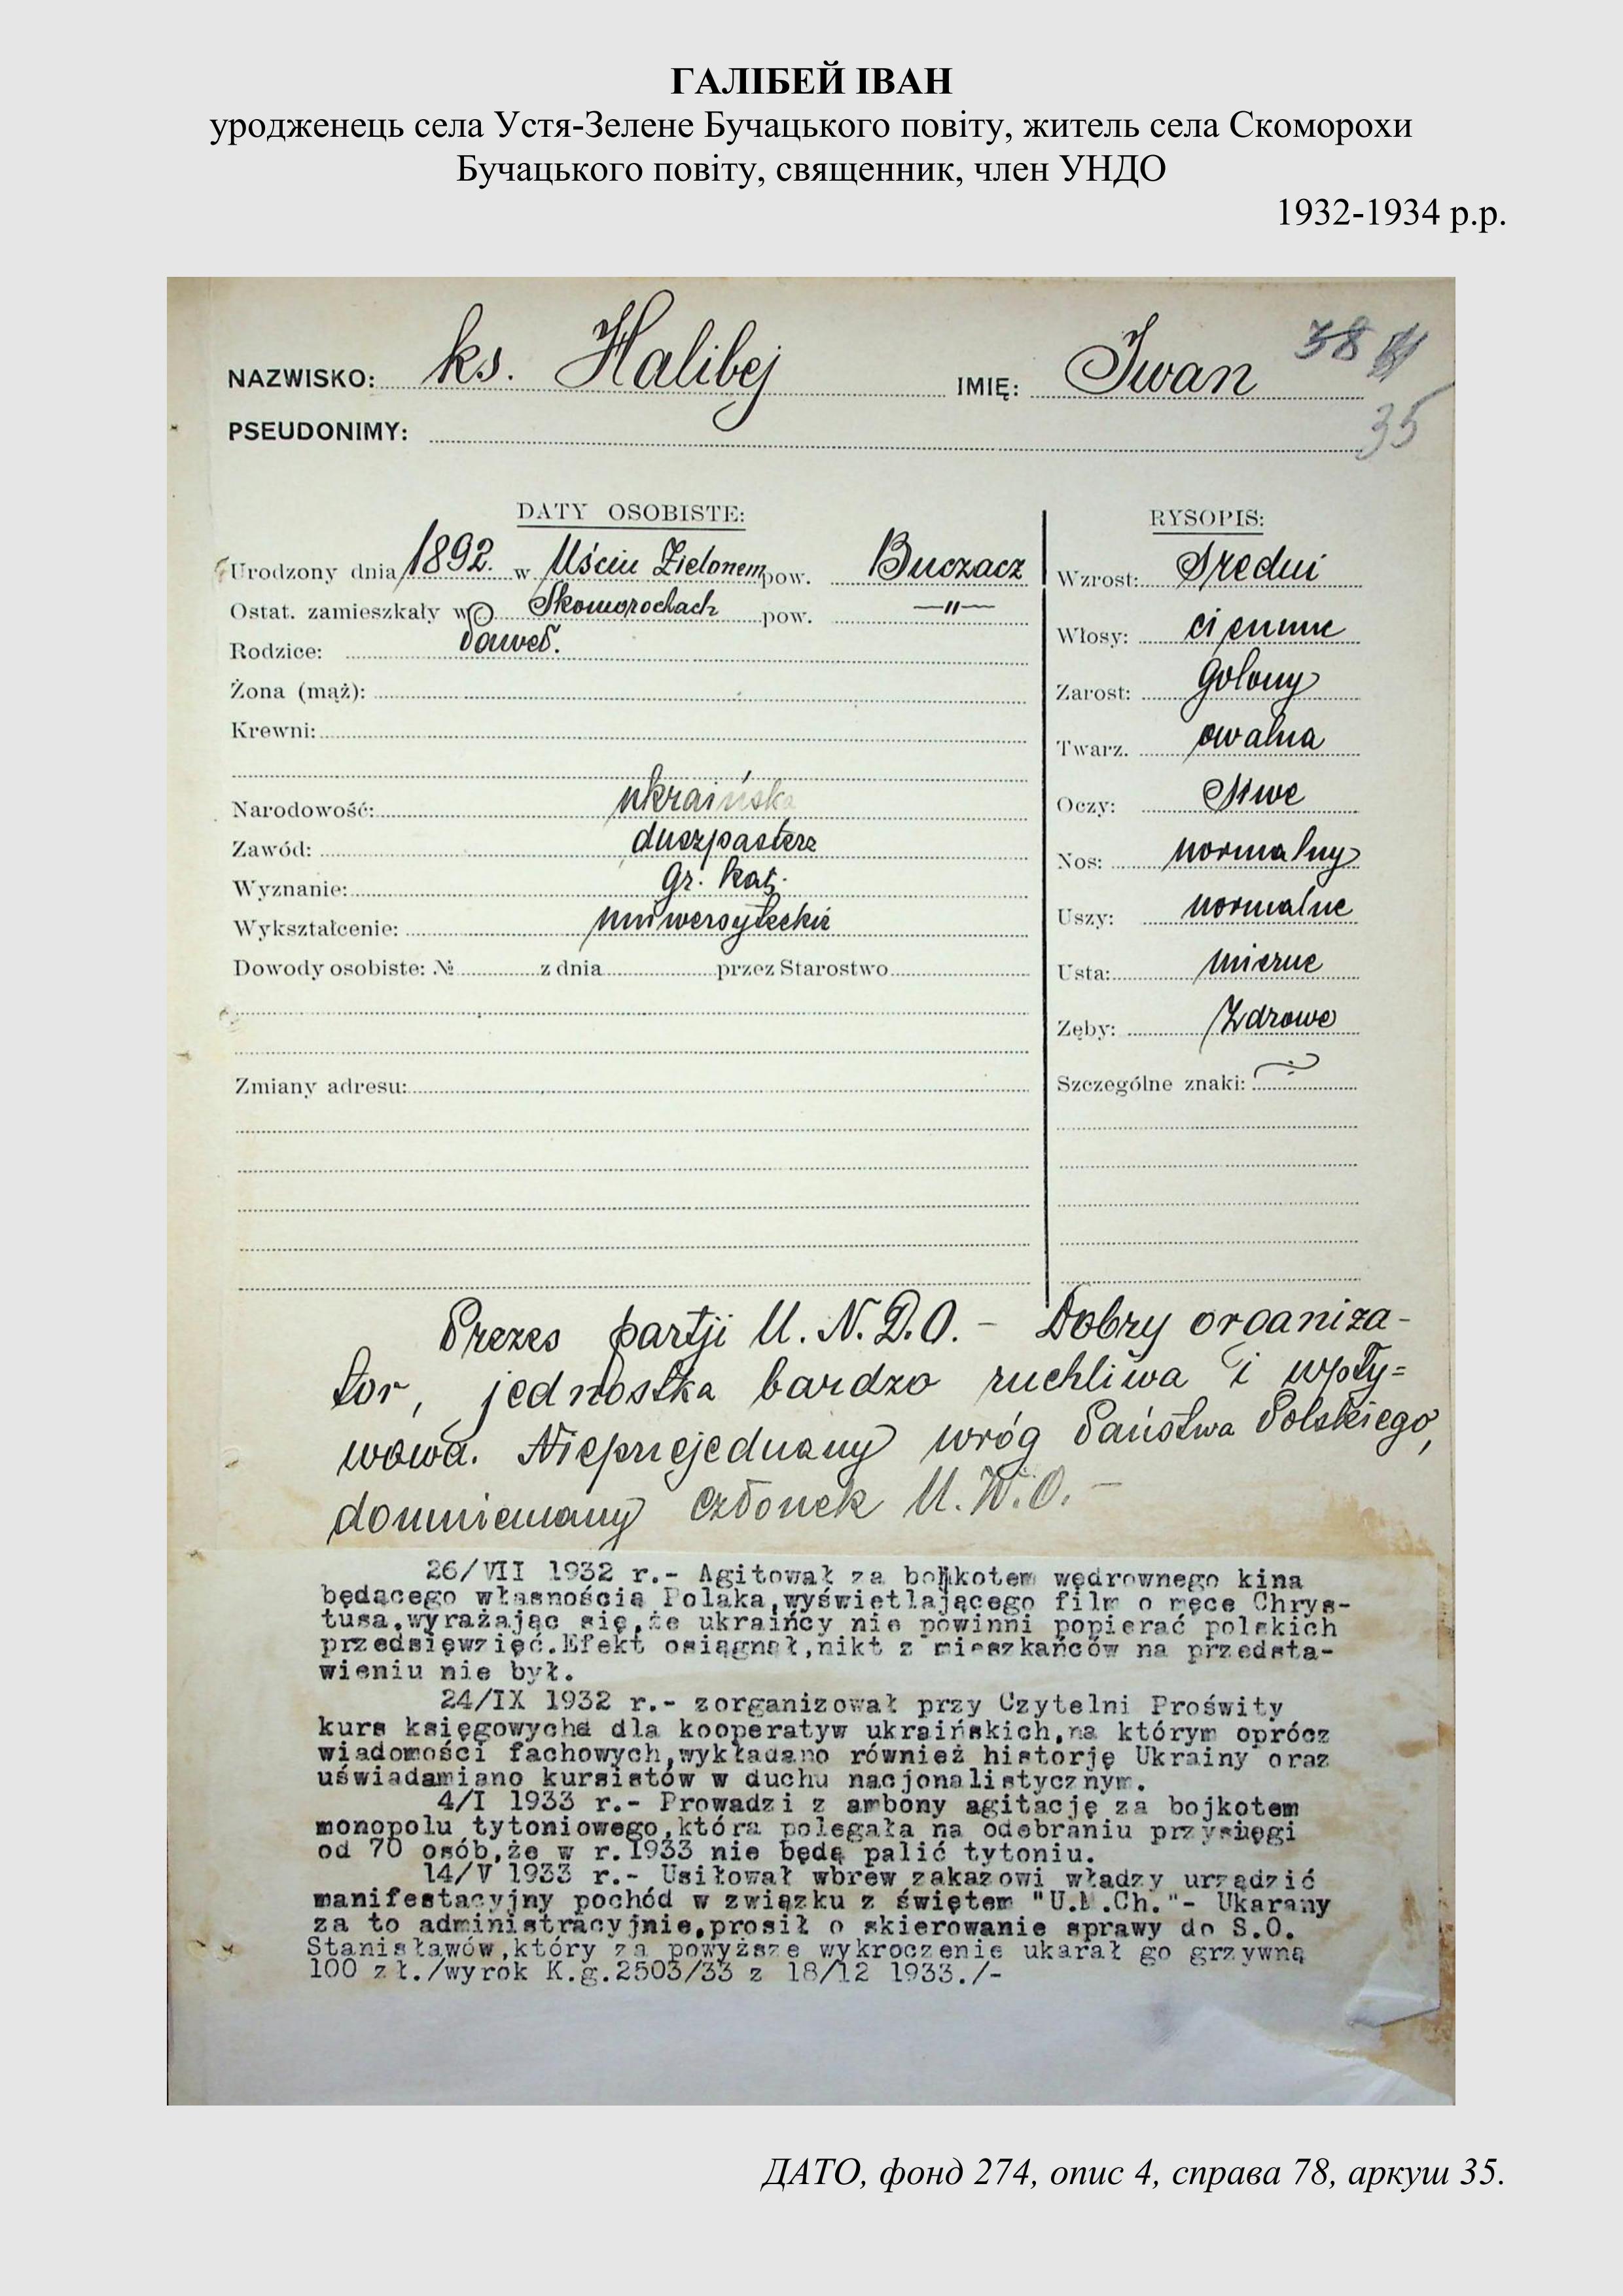 ГАЛІБЕЙ ІВАН
уродженець села Устя-Зелене Бучацького повіту, житель села Скоморохи
Бучацького повіту, священник, член УНДО
1932-1934 р.р.
NAZWISKO: ks. Halibej IMIĘ: Iwan 38
PSEUDONIMY: 35
DATY OSOBISTE:
Urodzony dnia 1892. w Uściu Zielonem pow. Buczacz
Ostat. zamieszkały w Skomorochach pow. —"—
Rodzice: Paweł.
Żona (mąż):
Krewni:
Narodowość: ukraińska
Zawód: duszpasterz
Wyznanie: gr. kat.
Wykształcenie: uniwersyteckie
Dowody osobiste: № z dnia przez Starostwo
Zmiany adresu:
RYSOPIS:
Wzrost: średni
Włosy: ciemne
Zarost: golony
Twarz. owalna
Oczy: siwe
Nos: normalny
Uszy: normalne
Usta: mierne
Zęby: zdrowe
Szczególne znaki:
Prezes partji U.N.D.O. - Dobry organiza-
tor, jednostka bardzo ruchliwa i wpły=
wowa. Nieprzejednany wróg Państwa Polskiego,
domniemany członek U.W.O. -
26/VII 1932 r.- Agitował za bojkotem wędrownego kina
będącego własnością Polaka,wyświetlającego film o męce Chrys-
tusa,wyrażając się,że ukraińcy nie powinni popierać polskich
przedsięwzięć.Efekt osiągnął,nikt z mieszkańców na przedsta-
wieniu nie był.
24/IX 1932 r.- zorganizował przy Czytelni Proświty
kurs księgowycha dla kooperatyw ukraińskich,na którym oprócz
wiadomości fachowych,wykładano również historję Ukrainy oraz
uświadamiano kursistów w duchu nacjonalistycznym.
4/I 1933 r.- Prowadzi z ambony agitację za bojkotem
monopolu tytoniowego,która polegała na odebraniu przysięgi
od 70 osób,że w r.1933 nie będą palić tytoniu.
14/V 1933 r.- Usiłował wbrew zakazowi władzy urządzić
manifestacyjny pochód w związku z świętem "U.M.Ch."- Ukarany
za to administracyjnie,prosił o skierowanie sprawy do S.O.
Stanisławów,który za powyższe wykroczenie ukarał go grzywną
100 zł./wyrok K.g.2503/33 z 18/12 1933./-
ДАТО, фонд 274, опис 4, справа 78, аркуш 35.